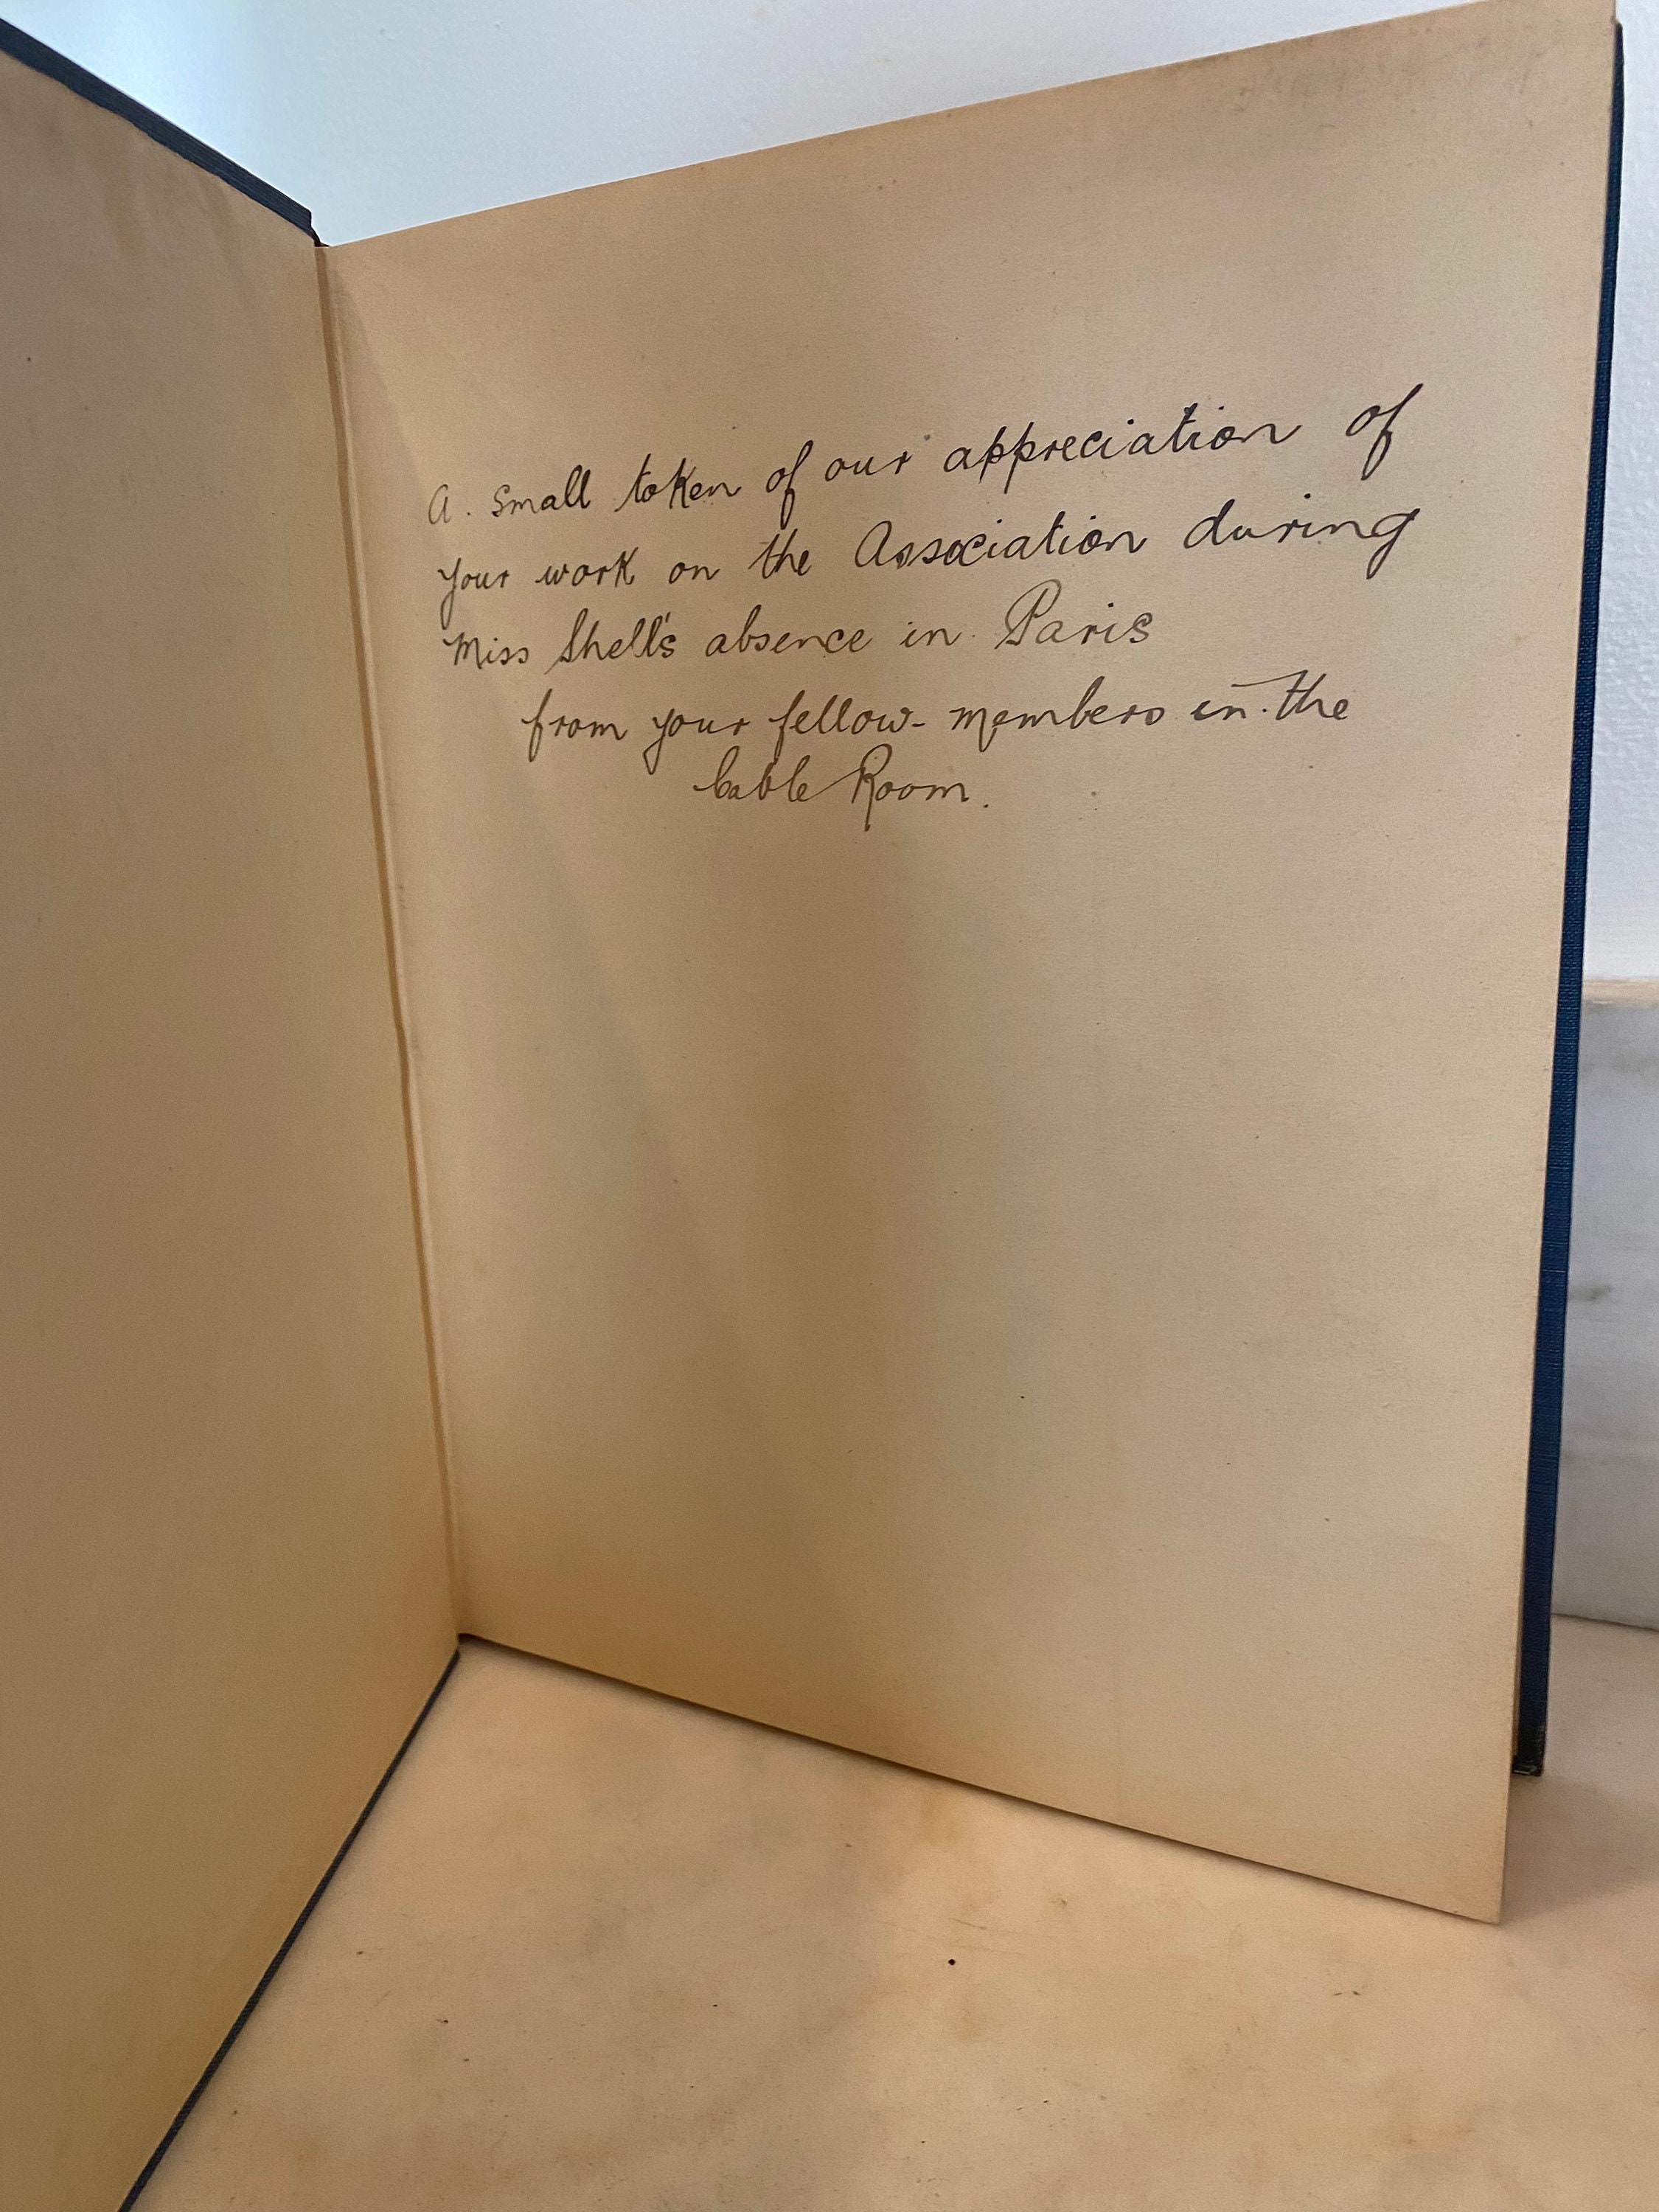 A. small token of our appreciation of
your work on the Association during
Miss Shell's absence in Paris
from your fellow-members in the
Cable Room.